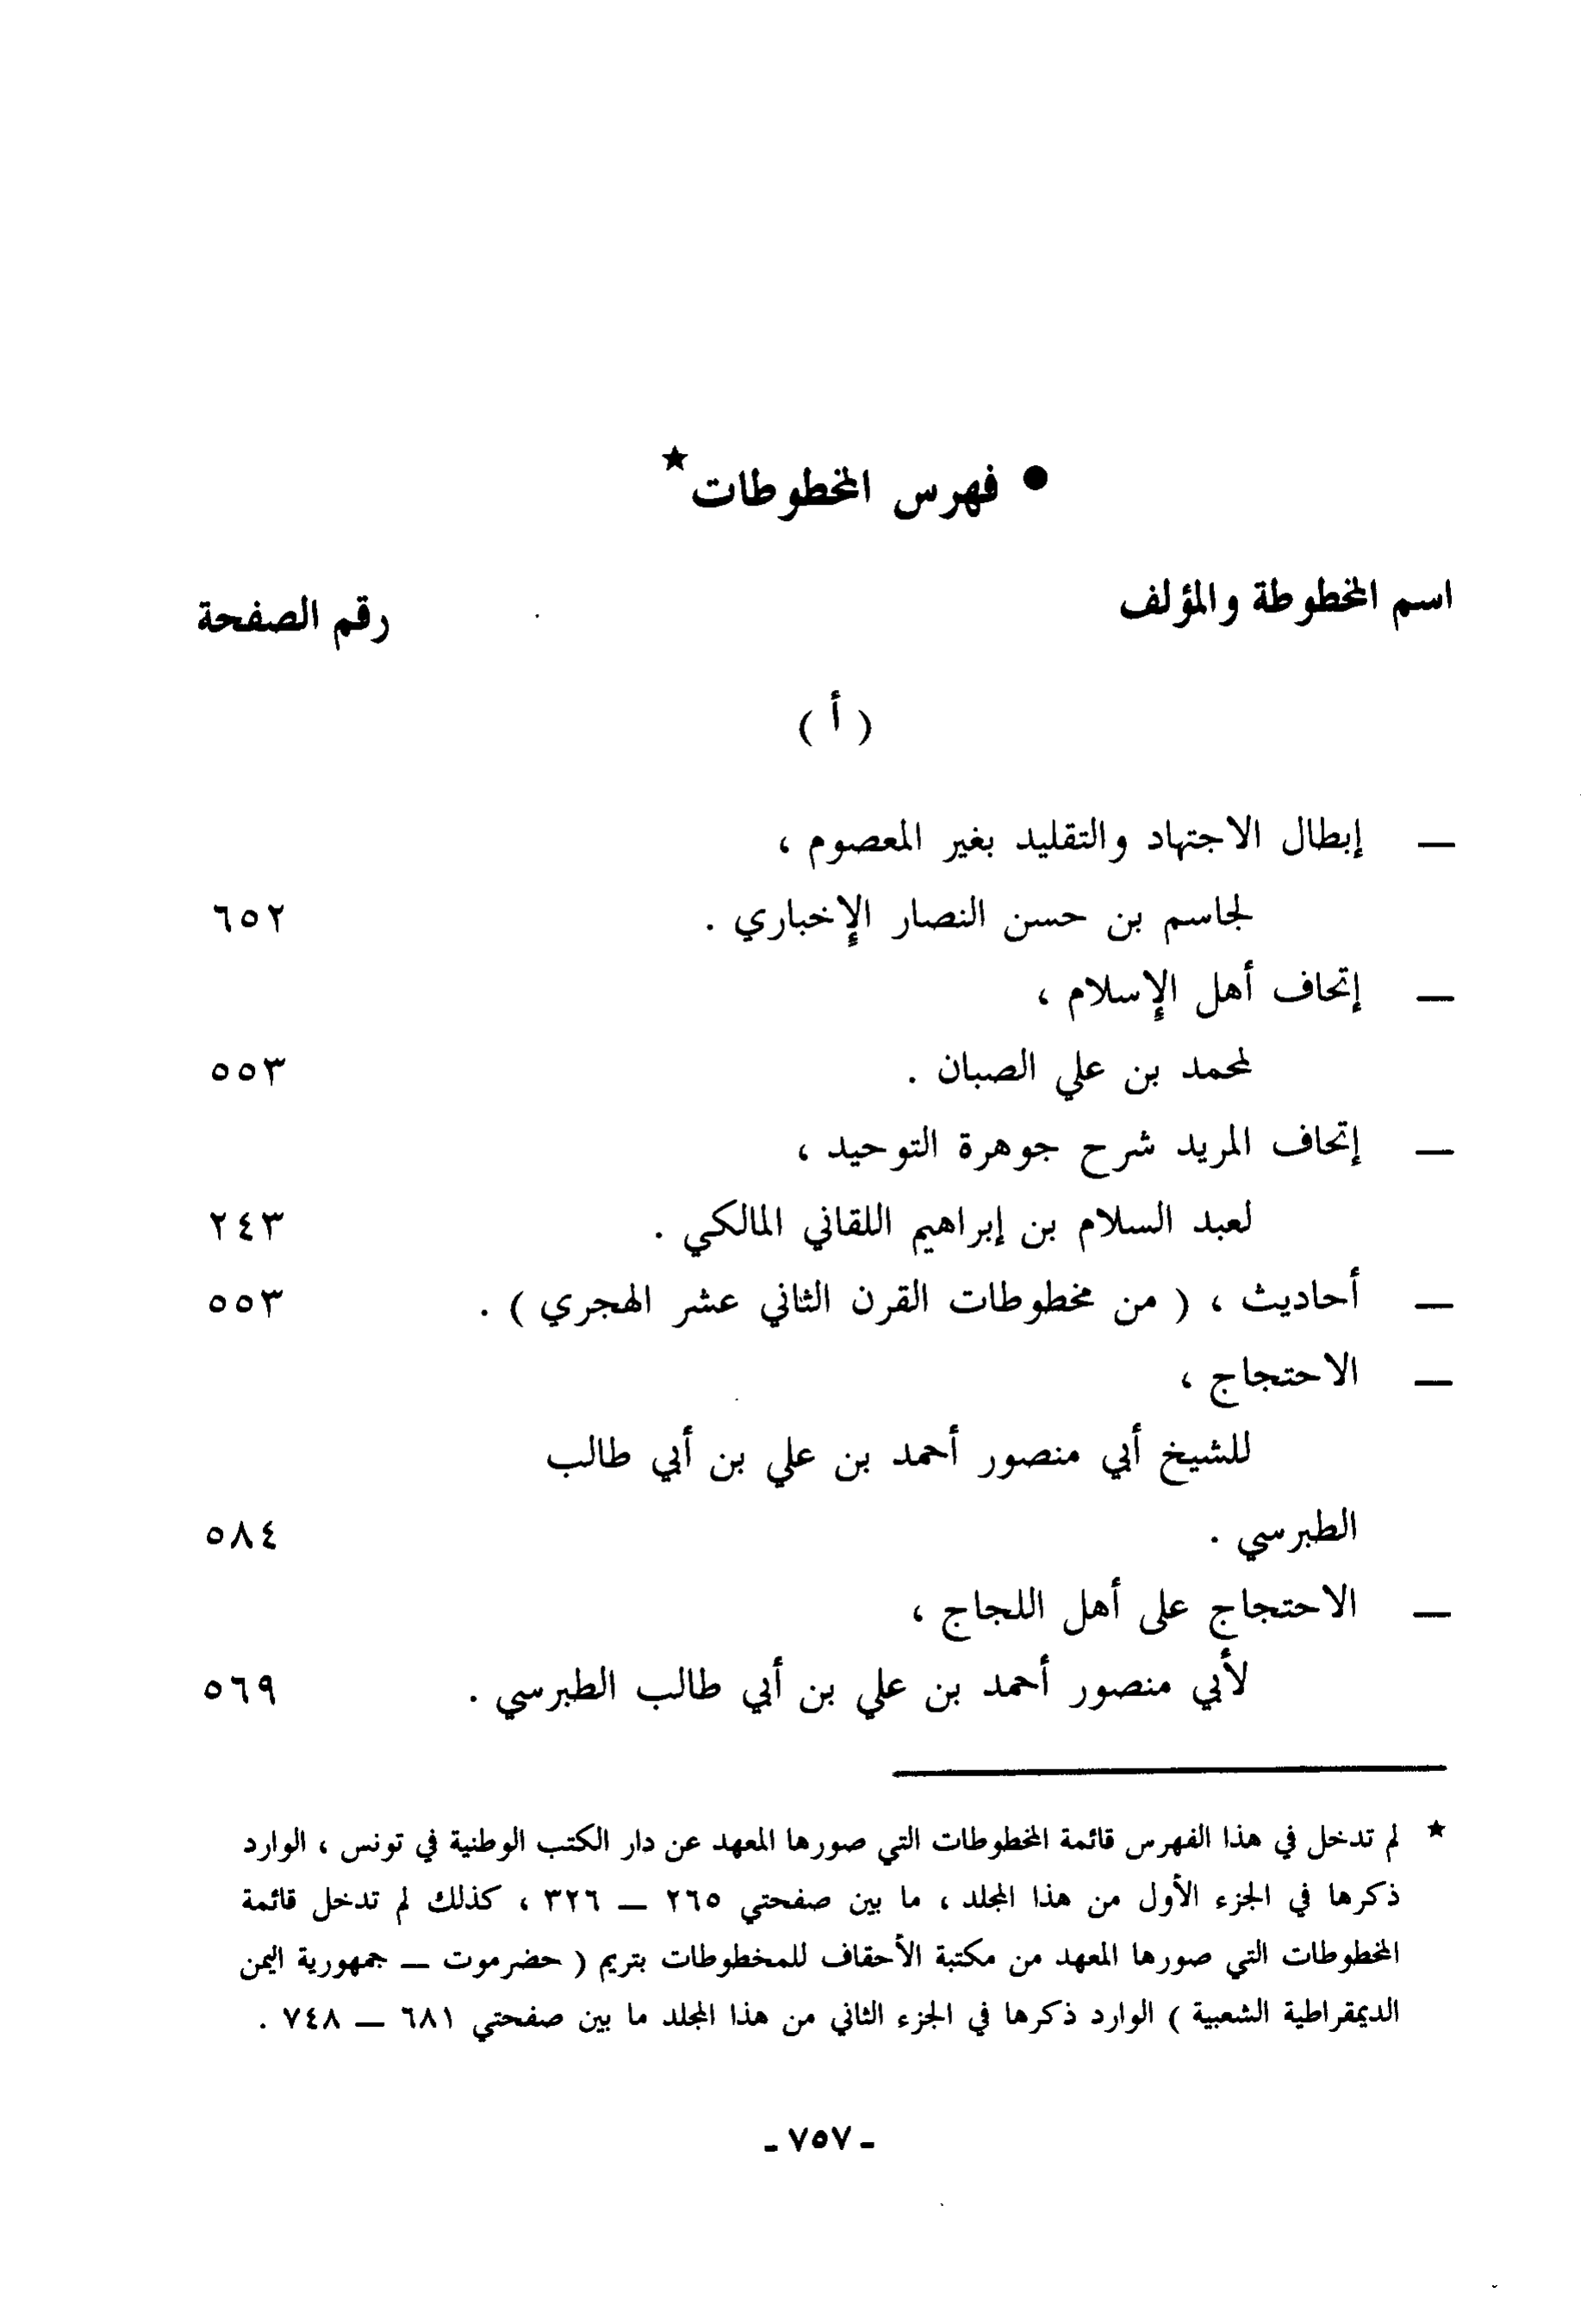 ● فهرس المخطوطات ★
اسم المخطوطة والمؤلف رقم الصفحة
( أ )
— إبطال الاجتهاد والتقليد بغير المعصوم ،
لجاسم بن حسن النصار الإخباري . ٦٥٢
— إتحاف أهل الإسلام ،
لمحمد بن علي الصبان . ٥٥٣
— إتحاف المريد شرح جوهرة التوحيد ،
لعبد السلام بن إبراهيم اللقاني المالكي . ٢٤٣
— أحاديث ، ( من مخطوطات القرن الثاني عشر الهجري ) . ٥٥٣
— الاحتجاج ،
للشيخ أبي منصور أحمد بن علي بن أبي طالب
الطبرسي . ٥٨٤
— الاحتجاج على أهل اللجاج ،
لأبي منصور أحمد بن علي بن أبي طالب الطبرسي . ٥٦٩
★ لم تدخل في هذا الفهرس قائمة المخطوطات التي صورها المعهد عن دار الكتب الوطنية في تونس ، الوارد
ذكرها في الجزء الأول من هذا المجلد ، ما بين صفحتي ٢٦٥ — ٣٢٦ ، كذلك لم تدخل قائمة
المخطوطات التي صورها المعهد من مكتبة الأحقاف للمخطوطات بتريم ( حضرموت — جمهورية اليمن
الديمقراطية الشعبية ) الوارد ذكرها في الجزء الثاني من هذا المجلد ما بين صفحتي ٦٨١ — ٧٤٨ .
- ٧٥٧ -